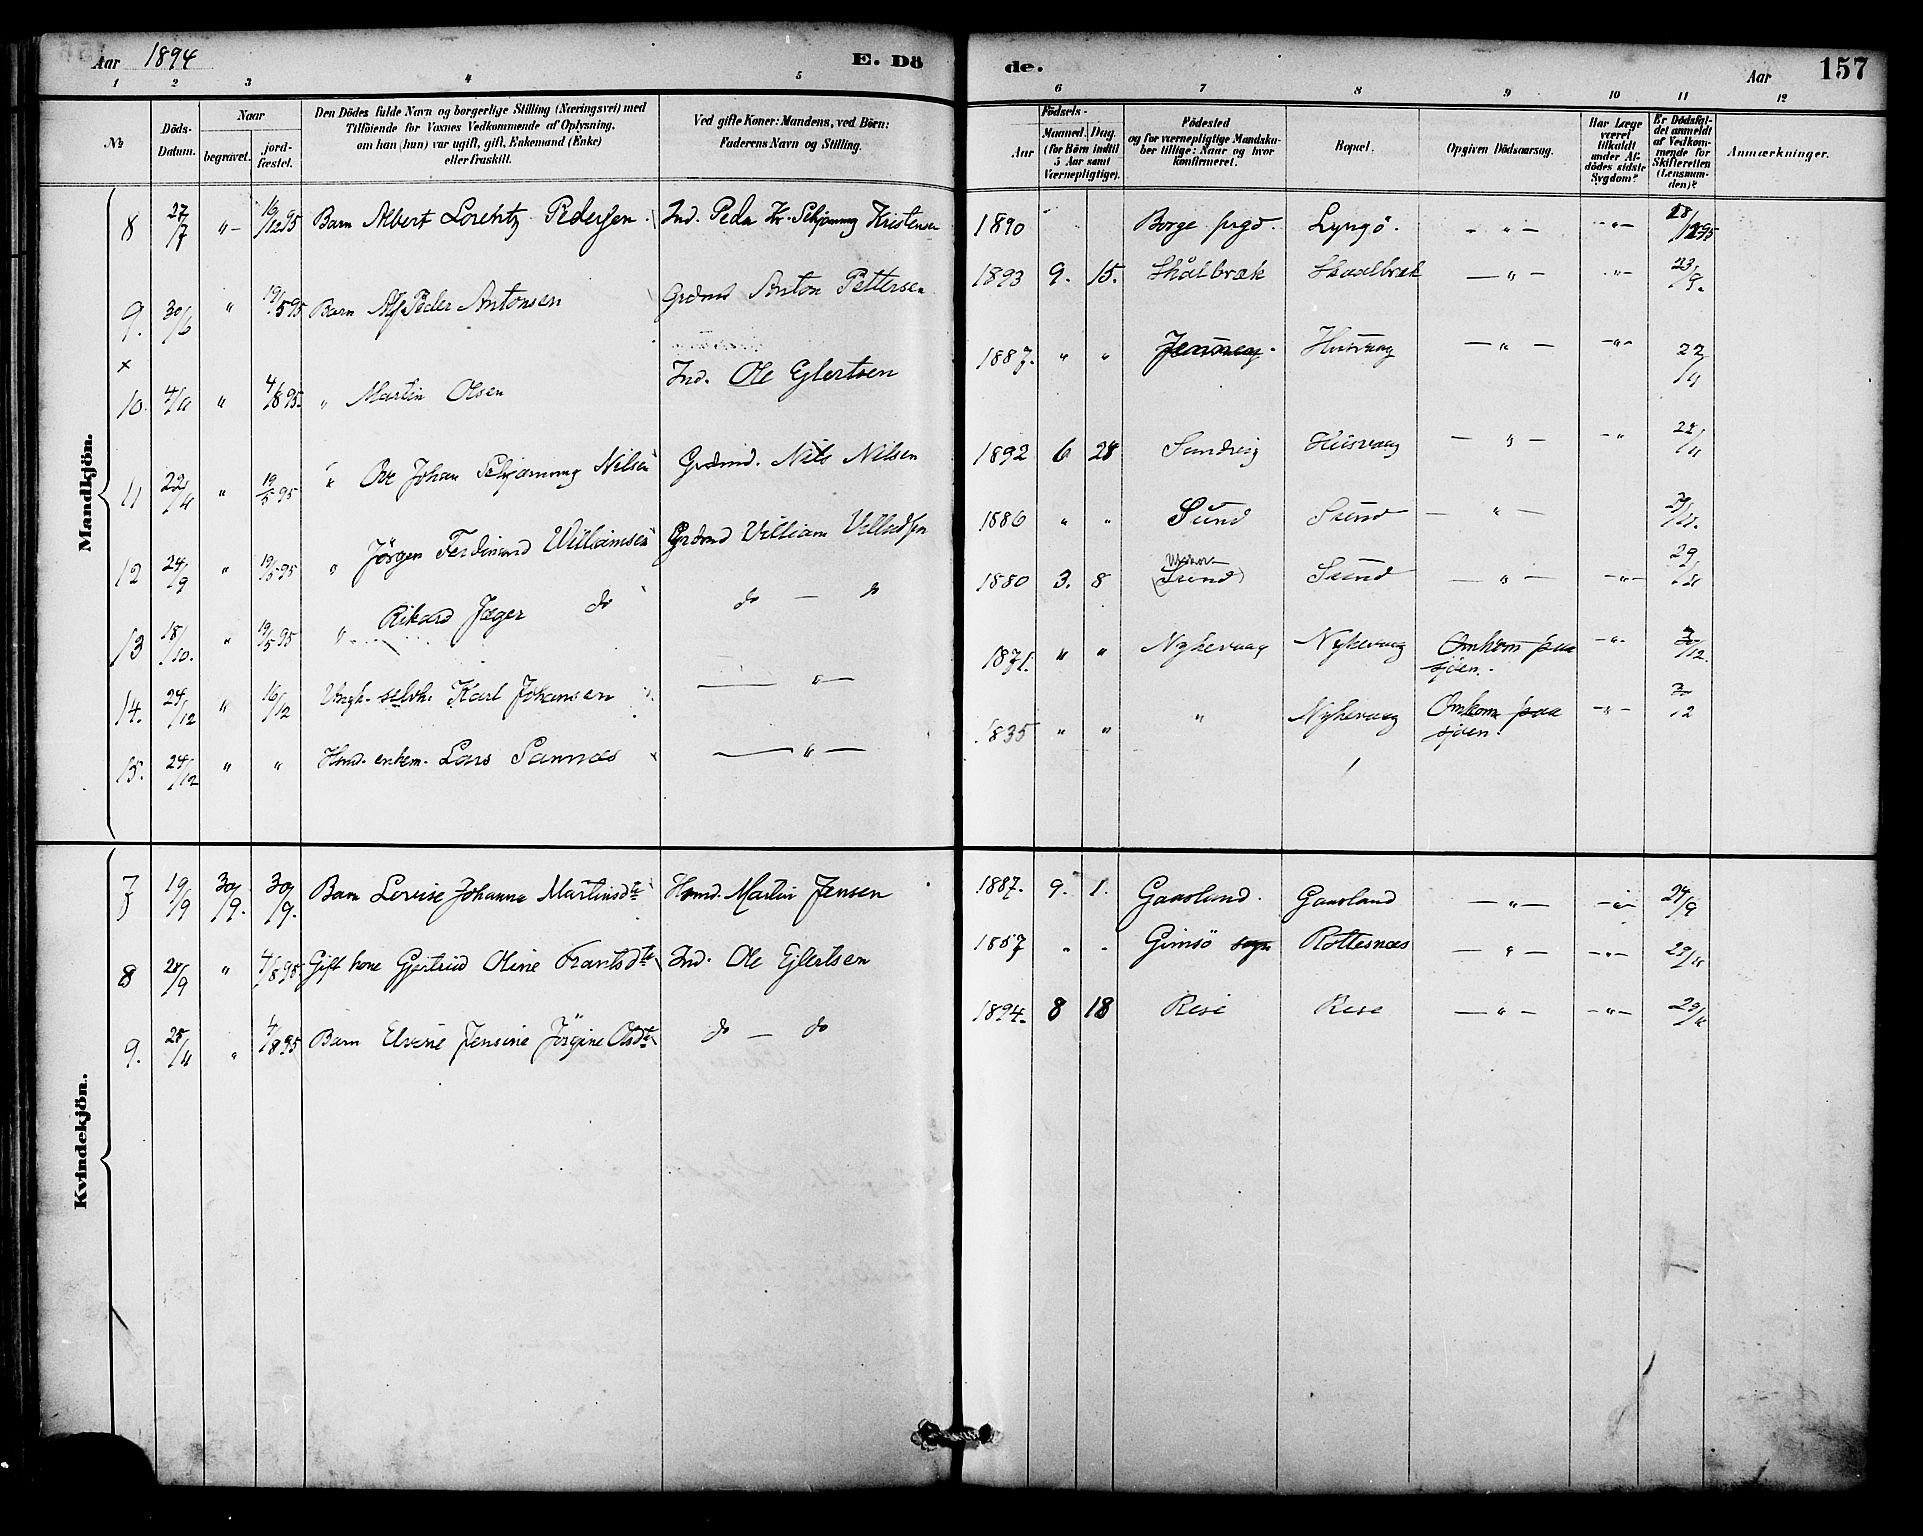 Aar 1894
E. Dö
de.
Aar
157
1 2 3 4 5 6 7 8 9 10 11 12
No
Döds-
Datum.
Naar
begravet.
jord-
fæstet.
Den Dödes fulde Navn og borgerlige Stilling (Næringsvei) med
Tilföiende for Voxnes Vedkommende af Oplysning,
om han (hun) var ugift, gift, Enkemand (Enke)
eller fraskilt.
Ved gifte Koner: Mandens, ved Börn:
Faderens Navn og Stilling.
Födsels-
Aar
Maaned. Dag.
(for Börn indtil
5 Aar samt
Værnepligtige).
Födested
og for værnepligtige Mandska-
ber tillige: Naar og hvor
konfirmeret.
Bopæl.
Opgiven Dödsaarsag.
Har Læge
været
tilkaldt
under Af-
dödes sidste
Sygdom?
Er Dödsfal-
det anmeldt
af Vedkom-
mende for
Skifteretten
(Lensman-
den)?
Anmærkninger.
Mandkjön.
8 27/7 " 16/12 95 Barn Albert Lorentz Pedersen Ind. Peder Kr. Schjanning Kristensen 1890 Borge prgd. Lyngö. — " — — " — 18/12 95
9. 30/6 " 19/5 95 Barn Alf Peder Antonsen Grdmd Anton Pettersen 1893 9. 15. Skålbræk Skaalbræk — " — — " — 23/9.
x
10. 4/11 " 4/8 95. " Martin Olsen Ind. Ole Ejlertsen 1887. " " Husvaag — " — — " — 22/11
11 22/11 " 19/5 95 " Ove Johan Schjanning Nilsen Grdmd. Nils Nilsen 1892 6 28 Sandvig Husvaag — " — — " 22/11
12 24/9 " 19/5 95 " Jörgen Ferdinand Williamsen Grdmd William Villadsen 1886 " " Sund Sund — " —
13 18/10. " 19/5 95 " Rikard Jæger do do — do 1880 3. 8 (Sund) Sund — " — — " — 29/11
14. 24/12 " 16/12 Ungk. selvh. Karl Johansen — " — 1871. " " Nykevaag Nykevaag Omkom paa
sjöen. — " — 3/12.
15. 24/12 " " Hmd. enkem. Lars Sannes — " — 1835 " " " Nykevaag Omkom paa
sjöen. — " — 3/12
Kvindekjön.
7 19/9 30/9. 30/9. Barn Lovise Johanna Martinsdtr Hmd. Martin Jensen 1887. 9. 1. Gaasland. Gaasland — " — — " — 24/9
8 28/9 " 4/8 95 Gift kone Gjertrud Oline Frantsdtr Ind. Ole Ejlertsen 1857 " " Gimsö sogn Rottesnæs — " — — " — 29/11
9. 28/11 " 4/8 95 Barn Elvine Jensine Jörgine Olsdtr do — do 1894. 8 18 Rese Rese — " — — " — 29/11